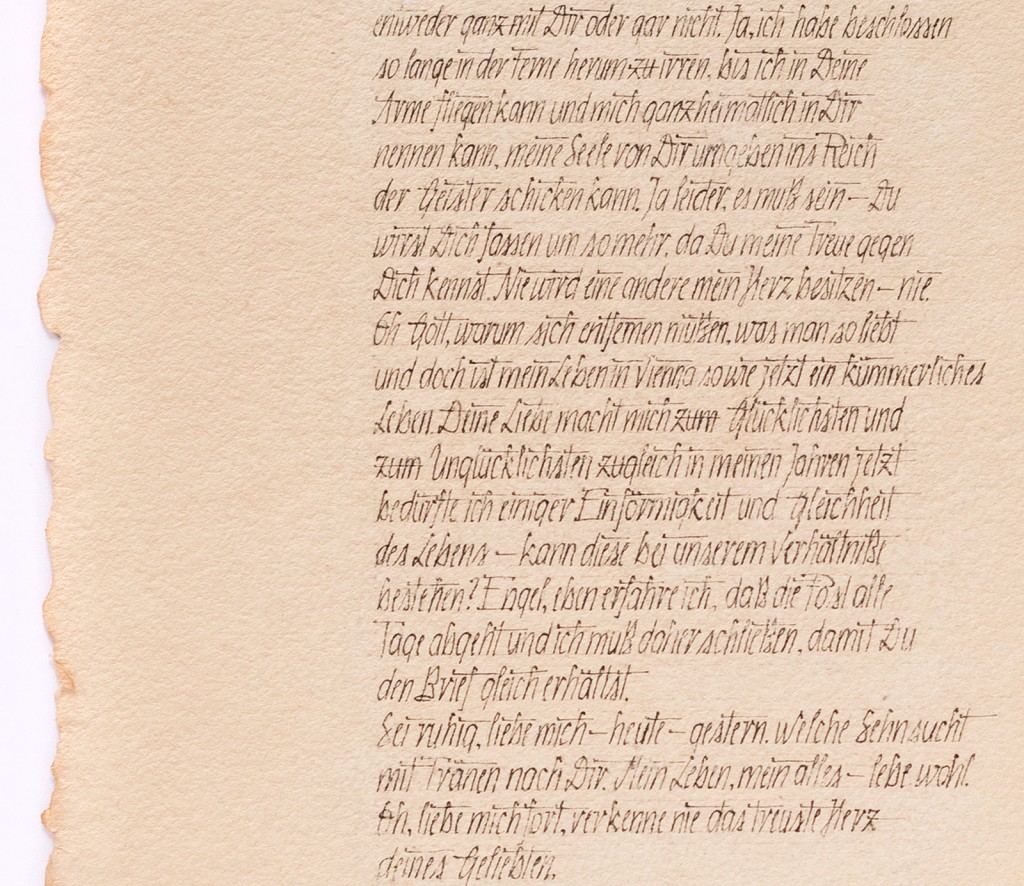 entweder ganz mit Dir oder gar nicht. Ja, ich habe beschlossen
so lange in der Ferne herum zu irren, bis ich in Deine
Arme fliegen kann und mich ganz heimatlich in Dir
nennen kann, meine Seele von Dir umgeben ins Reich
der Geister schicken kann. Ja leider, es muß sein – Du
wirst Dich fassen um so mehr, da Du meine Treue gegen
Dich kennst. Nie wird eine andere mein Herz besitzen – nie.
Oh Gott, warum sich entfernen müßen, was man so liebt
und doch ist mein Leben in Vienna so wie jetzt ein kümmerliches
Leben. Deine Liebe macht mich zum Glücklichsten und
zum Unglücklichsten zugleich in meinen Jahren jetzt
bedürfte ich einiger Einförmigkeit und Gleichheit
des Lebens – kann diese bei unserem Verhältniße
bestehen? Engel, eben erfahre ich, daß die Post alle
Tage abgeht und ich muß daher schließen, damit Du
den Brief gleich erhältst.
Sei ruhig, liebe mich – heute – gestern. Welche Sehnsucht
mit Tränen nach Dir. Mein Leben, mein alles – lebe wohl.
Oh, liebe mich fort, verkenne nie das treuste Herz
deines Geliebten.